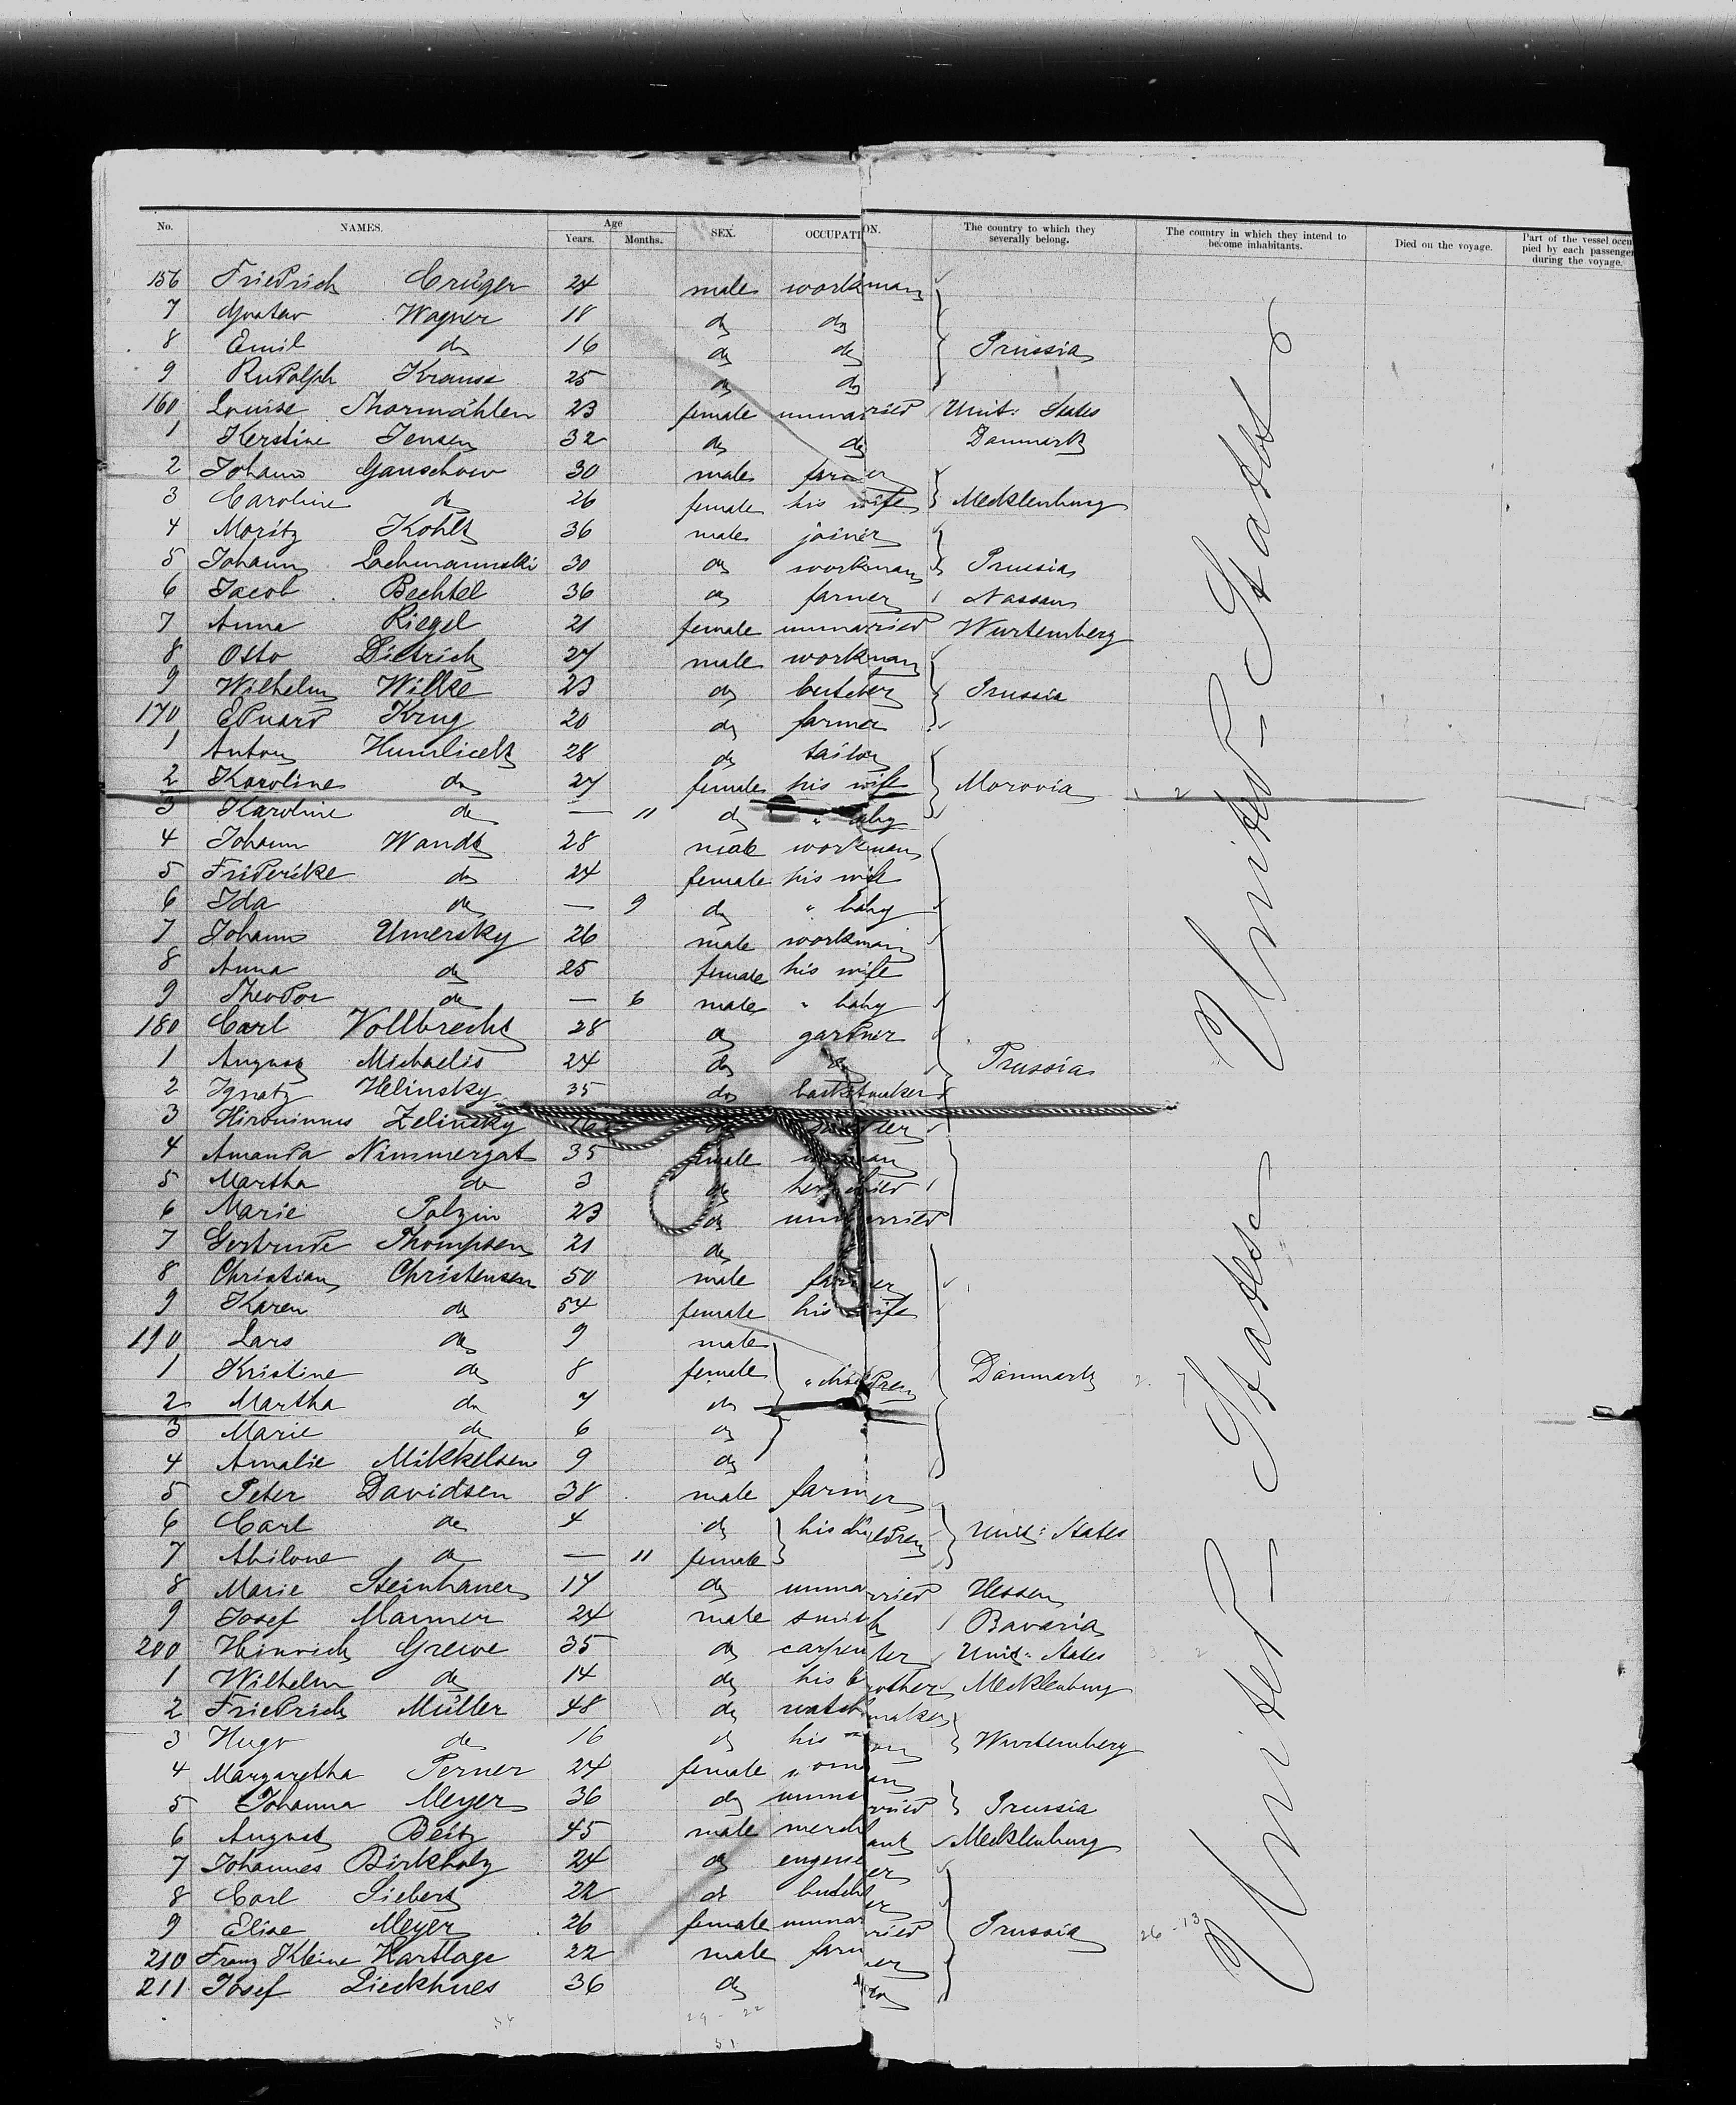 No. NAMES. Age Years. Months. SEX. OCCUPATION. The country to which they severally belong. The country in which they intend to become inhabitants. Died on the voyage. Part of the vessel occupied by each passenger during the voyage.
156 Friedrich Crüger 24 male workman
7 Gustav Wagner 18 do do
8 Emil do 16 do do Prussia
9 Rudolph Krause 25 do do
160 Louise Thormählen 23 female unmarried Unit: States
1 Kerstine Jensen 32 do do Danmark
2 Johann Ganschow 30 male farmer
3 Caroline do 26 female his wife Mecklenburg
4 Moritz Kohls 36 male joiner
5 Johann Lachmannski 30 do workman Prussia
6 Jacob Bechtel 36 do farmer Nassau
7 Anna Riegel 21 female unmarried Wurtemberg
8 Otto Dietrich 27 male workman
9 Wilhelm Wilke 23 do butcher Prussia
170 Eduard Krug 20 do farmer
1 Anton Humlicek 28 do tailor
2 Karoline do 27 female his wife Morovia
3 Karoline do — 11 do " baby
4 Johann Wandt 28 male workman
5 Friderike do 24 female his wife
6 Ida do — 9 do " baby
7 Johann Umersky 26 male workman
8 Anna do 25 female his wife
9 Theodor do — 6 male " baby
180 Carl Vollbrecht 28 do gardner
1 August Michaelis 24 do do Prussia
2 Ignatz Helinsky 35 do basketmaker
3 Hironimus Zelinsky do
4 Amanda Nimmergat 35 female woman
5 Martha do 3 do her child
6 Marie Polzin 23 do unmarried
7 Gertrude Thompsen 21 do
8 Christian Christensen 50 male farmer
9 Karen do 54 female his wife
190 Lars do 9 male
1 Kristine do 8 female " children Danmark
2 Martha do 7 do
3 Marie do 6 do
4 Amalie Mikkelsen 9 do
5 Peter Davidsen 38 male farmer
6 Carl do 4 do his children Unit: States
7 Abilone do — 11 female
8 Marie Steinhauer 17 do unmarried Hessen
9 Josef Manner 24 male smith Bavaria
200 Hinrich Grewe 35 do carpenter Unit: States
1 Wilhelm do 14 do his brother Mecklenburg
2 Friedrich Müller 48 do watchmaker
3 Hugo do 16 do his son Wurtemberg
4 Margaretha Perner 24 female woman
5 Johanna Meyer 36 do unmarried Prussia
6 August Beitz 45 male merchant Mecklenburg
7 Johannes Birkholz 24 do engeneer
8 Carl Siebert 22 do butcher
9 Elise Meyer 26 female unmarried Prussia
210 Franz Kleine Hartlage 22 male farmer
211 Josef Lieckhues 36 do do
United-States
United-States